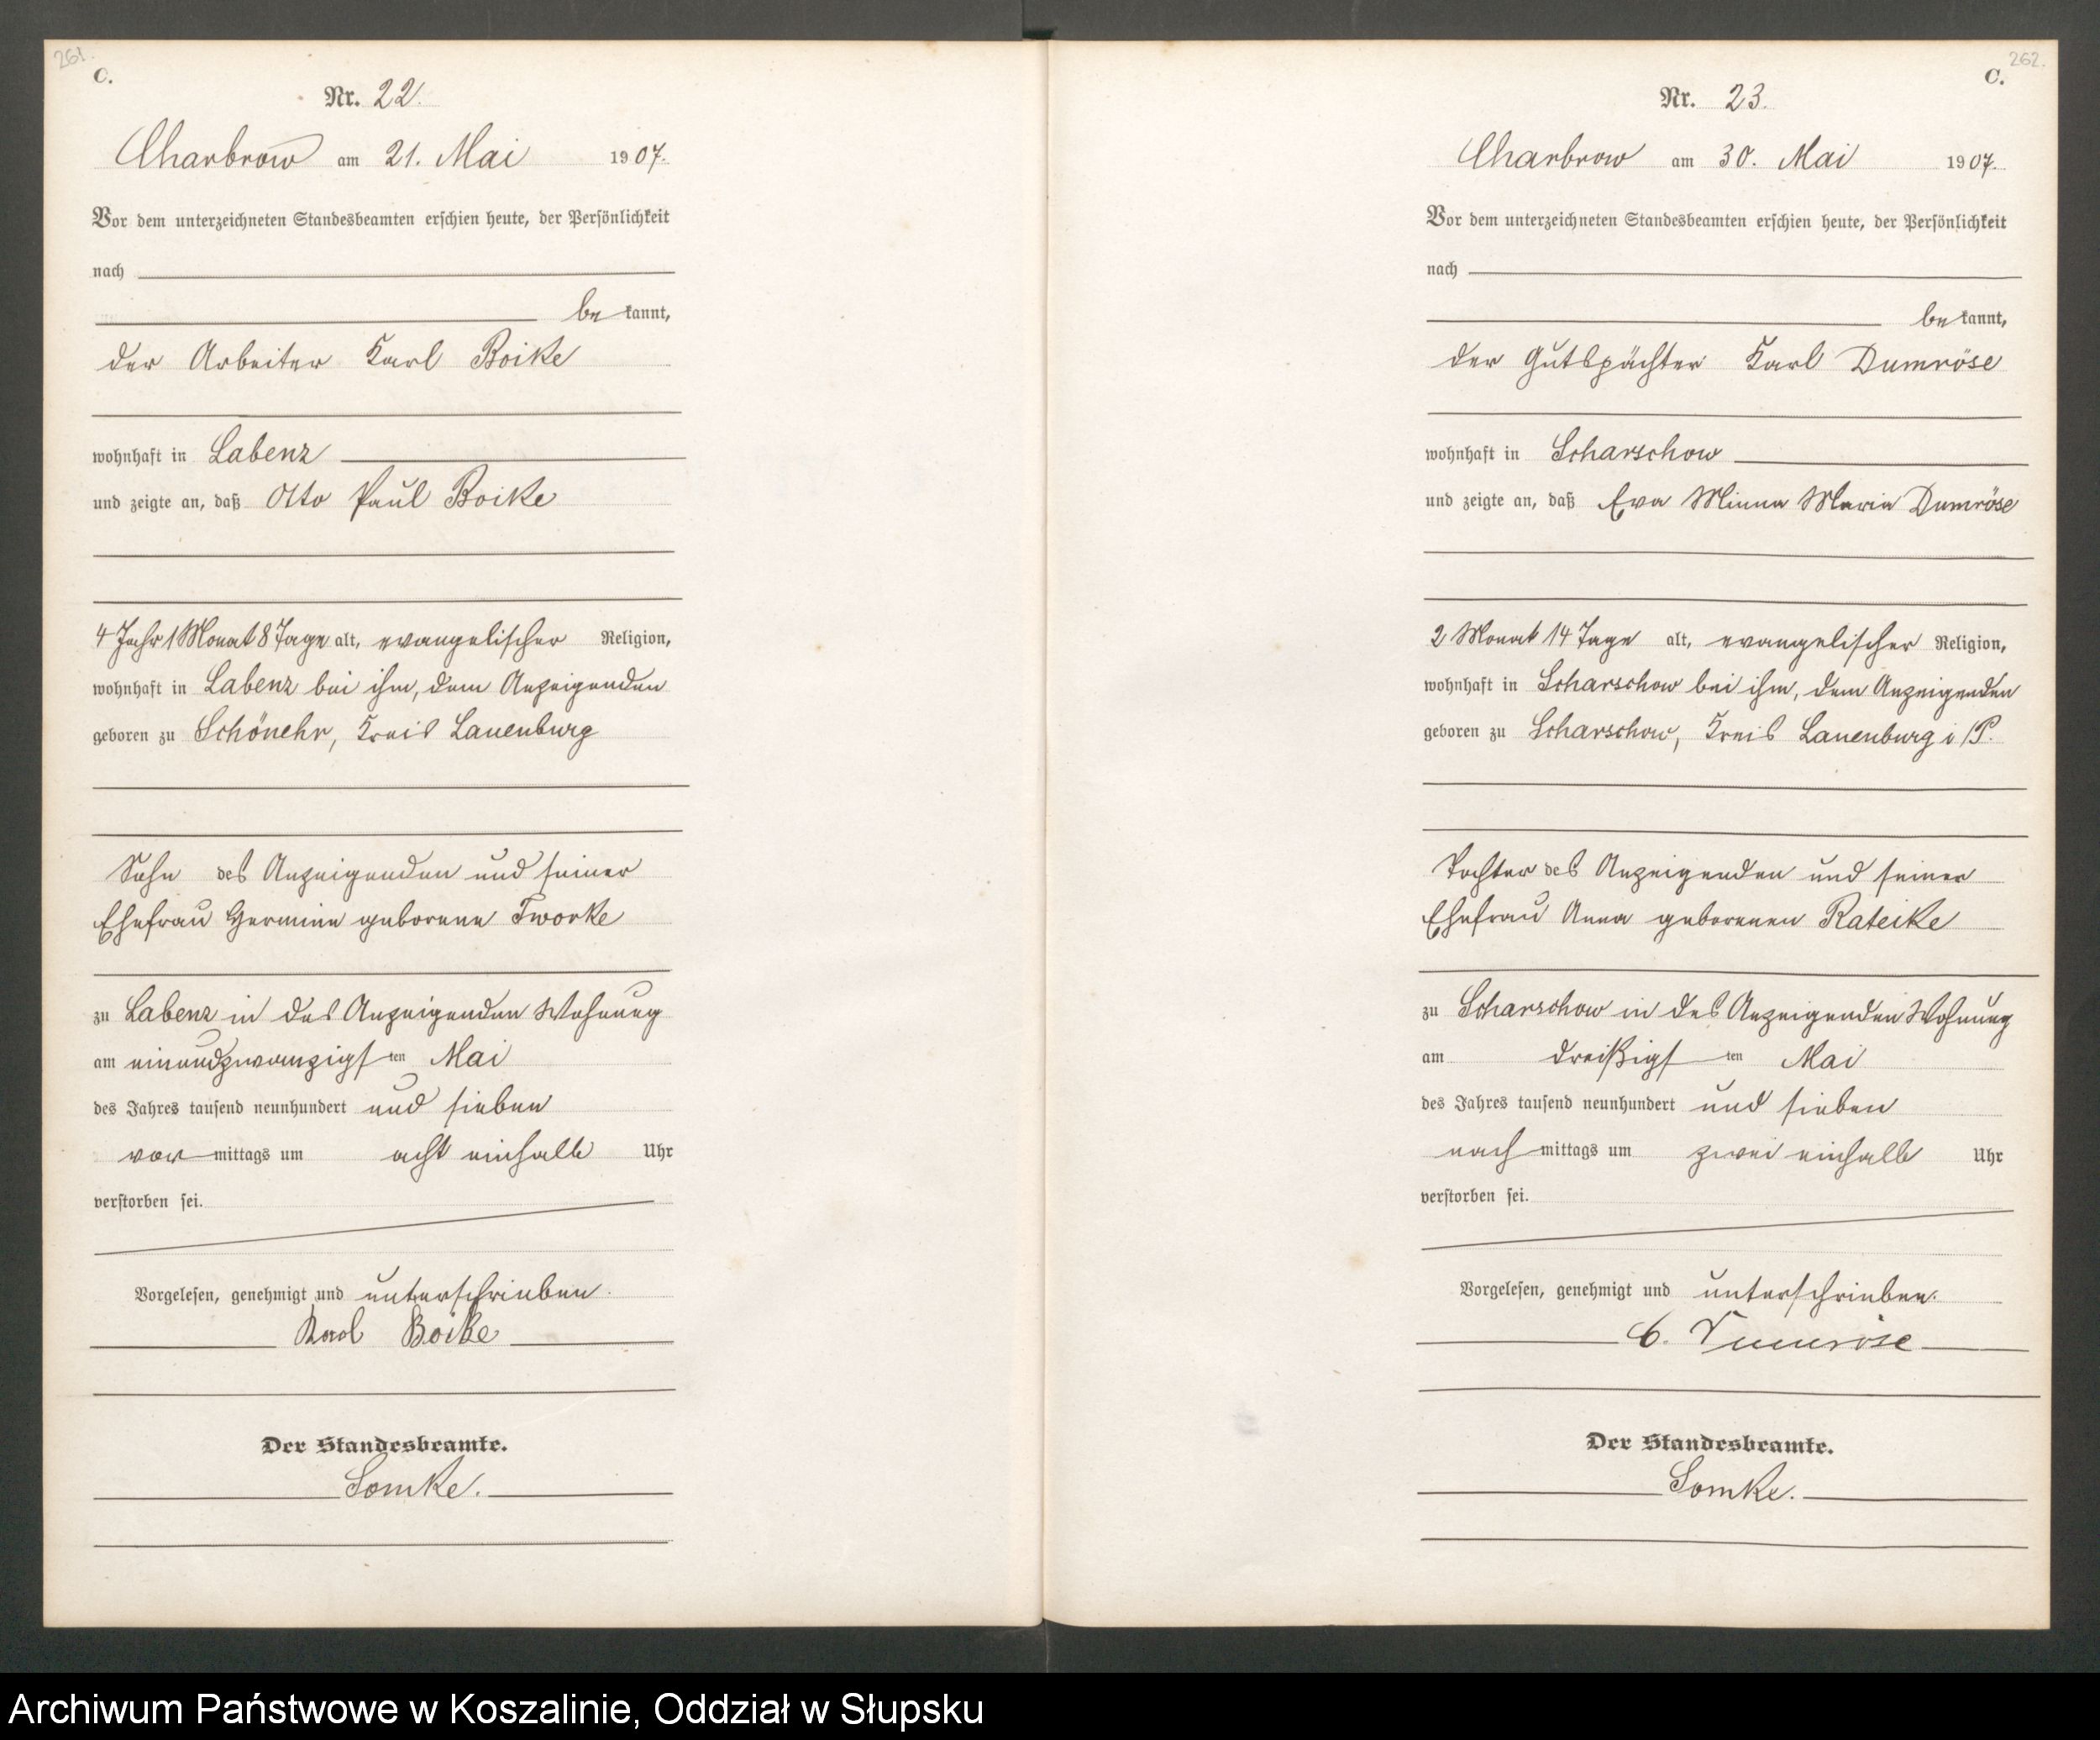 261.
C.
Nr. 22.
Charbrow am 21. Mai 1907.
Vor dem unterzeichneten Standesbeamten erschien heute, der Persönlichkeit
nach
be kannt,
der Arbeiter Karl Boike
wohnhaft in Labenz
und zeigte an, daß Otto Paul Boike
4 Jahr 1 Monat 8 Tage alt, evangelischer Religion,
wohnhaft in Labenz bei ihm, dem Anzeigenden
geboren zu Schönehr, Kreis Lauenburg
Sohn des Anzeigenden und seiner
Ehefrau Hermine geborene Tworke
zu Labenz in des Anzeigenden Wohnung
am einundzwanzigs ten Mai
des Jahres tausend neunhundert und sieben
vor mittags um acht einhalb Uhr
verstorben sei.
Vorgelesen, genehmigt und unterschrieben.
Karl Boike
Der Standesbeamte.
Somke.
262.
C.
Nr. 23.
Charbrow am 30. Mai 1907.
Vor dem unterzeichneten Standesbeamten erschien heute, der Persönlichkeit
nach
be kannt,
der Gutspächter Karl Dumröse
wohnhaft in Scharschow
und zeigte an, daß Eva Minna Maria Dumröse
2 Monat 14 Tage alt, evangelischer Religion,
wohnhaft in Scharschow bei ihm, dem Anzeigenden
geboren zu Scharschow, Kreis Lauenburg i/P.
Tochter des Anzeigenden und seiner
Ehefrau Anna geborenen Rateike
zu Scharschow in des Anzeigenden Wohnung
am dreißigs ten Mai
des Jahres tausend neunhundert und sieben
nach mittags um zwei einhalb Uhr
verstorben sei.
Vorgelesen, genehmigt und unterschrieben.
C. Dumröse
Der Standesbeamte.
Somke.
Archiwum Państwowe w Koszalinie, Oddział w Słupsku